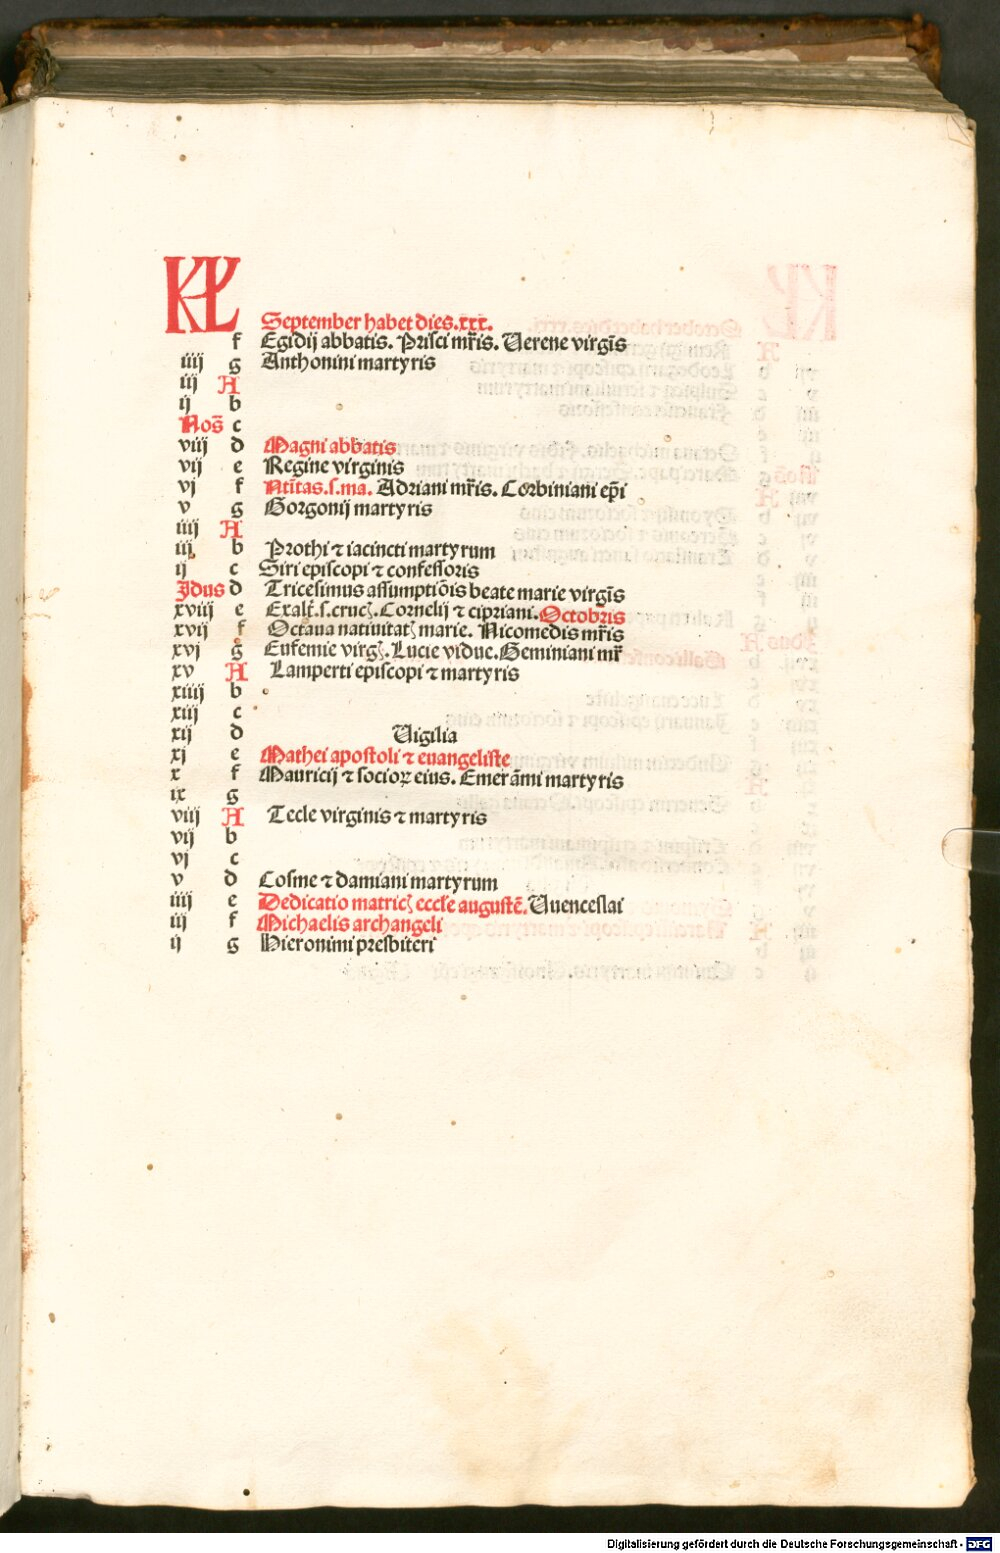 KL
September habet dies.xxx.
f Egidij abbatis. Prisci mr̄is. Verene virgīs
iiij g Anthonini martyris
iij A
ij b
Noñ c
viij d Magni abbatis
vij e Regine virginis
vj f Ntītas.s.ma. Adriani mr̄is. Corbiniani ep̄i
v g Gorgonij martyris
iiij A
iij b Prothi ⁊ iacincti martyrum
ij c Siri episcopi ⁊ confessoris
Jdus d Tricesimus assumptiōis beate marie virgīs
xviij e Exalt̄.s.crucꝭ. Cornelij ⁊ cipriani. Octobris
xvij f Octaua natiuitatꝭ marie. Nicomedis mr̄is
xvj g Eufemie virgꝭ. Lucie vidue. Geminiani mr̄
xv A Lamperti episcopi ⁊ martyris
xiiij b
xiij c
xij d Vigilia
xj e Mathei apostoli ⁊ euangeliste
x f Mauricij ⁊ socioꝝ eius. Emerāmi martyris
ix g
viij A Tecle virginis ⁊ martyris
vij b
vj c
v d Cosme ⁊ damiani martyrum
iiij e Dedicatio matricꝭ eccl̄e augustē. Vuenceslai
iij f Michaelis archangeli
ij g Hieronimi presbiteri
Digitalisierung gefördert durch die Deutsche Forschungsgemeinschaft - DFG